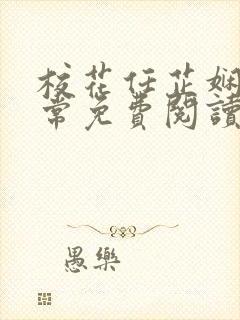 校花任芷嫻
常免費閱讀
愚樂